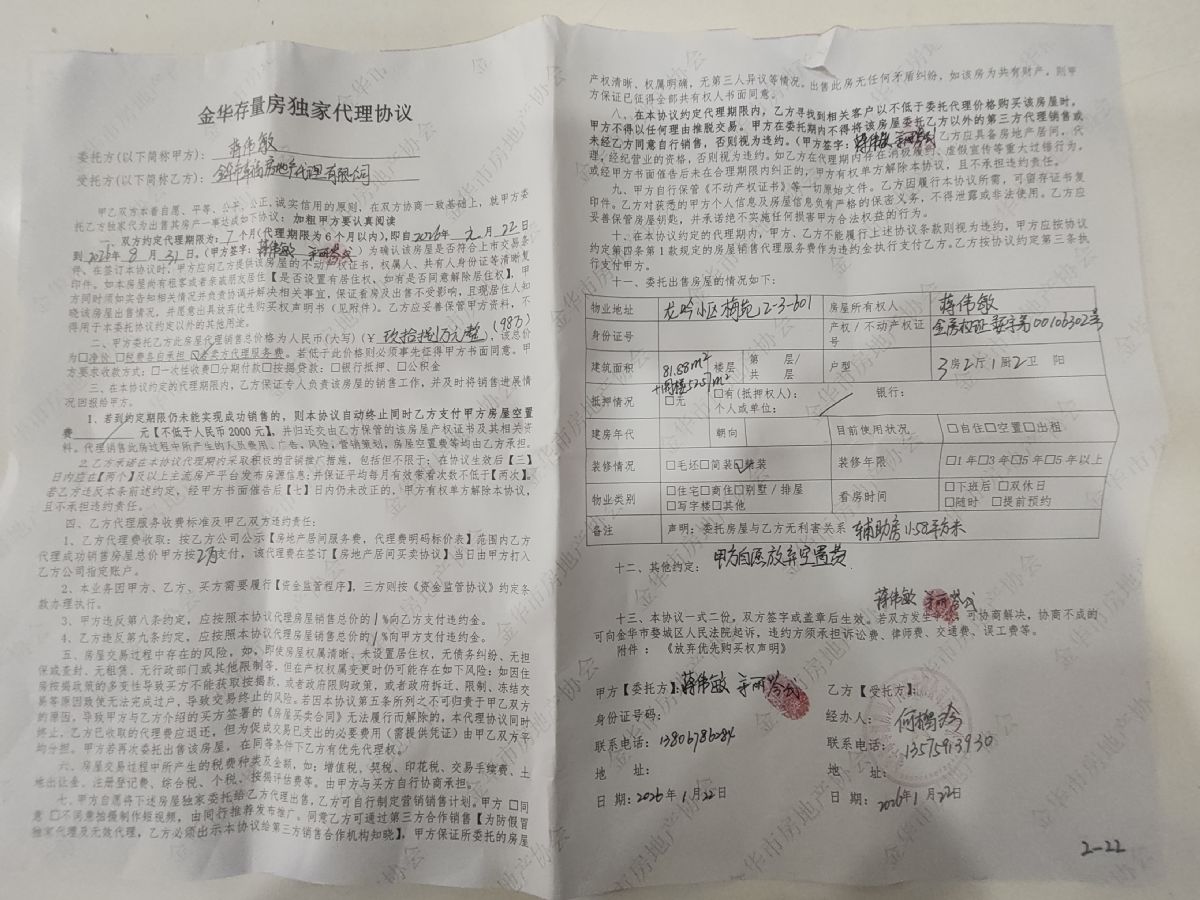 金华存量房独家代理协议
委托方(以下简称甲方): 蒋伟敏
受托方(以下简称乙方): 房地产代理有限公司
甲乙双方本着自愿、平等、公平、公正、诚实信用的原则，在双方协商一致基础上，就甲方委
托乙方独家代为出售其房产一事达成如下协议：加粗甲方要认真阅读
一、双方约定代理期限为: 7 个月(代理期限为6个月以内)，即自2026年 元 月 22 日
到 2026年 8 月 31 日。(甲方签字: 蒋伟敏 )为确认该房屋是否符合上市交易条
件，在签订本协议时，甲方应向乙方提供该房屋的不动产权证书，权属人、共有人身份证等清晰复
印件。如本房屋尚有租客或者亲戚朋友居住【是否设置有居住权，如有是否同意解除居住权】，甲
方同时须如实告知相关情况并负责协调并解决相关事宜，保证看房及出售不受影响，且现居住人知
晓该房屋出售情况，并愿意出具放弃优先购买权声明书（见附件）。乙方应妥善保管甲方资料，不
得用于本委托协议约定以外的其他用途。
二、甲方委托乙方此房屋代理销售总价格为人民币(大写)(￥ 玖拾捌万元整 (98万) )，该总价
为□净价 □税费各自承担 ☑含卖方代理服务费。若低于此价格则必须事先征得甲方书面同意。甲
方要求收款方式: □一次性收费□分期付款□按揭贷款: □银行抵押、□公积金
三、在本协议约定的代理期限内，乙方保证专人负责该房屋的销售工作，并及时将销售进展情
况回报给甲方。
1、若到约定期限仍未能实现成功销售的，则本协议自动终止同时乙方支付甲方房屋空置
费 / 元【不低于人民币2000元】，并归还交由乙方保管的该房屋产权证书及其相关资
料。代理销售此房屋过程中所产生的人员费用、广告、风险，营销策划，房屋空置费等均由乙方承担。
2.乙方承诺在本协议代理期内采取积极的营销推广措施，包括但不限于：在协议生效后【三】
日内应在【两个】及以上主流房产平台发布房源信息;并保证平均每月有效带看次数不低于【两次】。
若乙方违反本条前述约定，经甲方书面催告后【七】日内仍未改正的，甲方有权单方解除本协议，
且不承担违约责任。
四、乙方代理服务收费标准及甲乙双方违约责任:
1、乙方代理费收取: 按乙方公司公示【房地产居间服务费，代理费明码标价表】范围内乙方
代理成功销售房屋总价甲方按 2万 支付，该代理费在签订【房地产居间买卖协议】当日由甲方打入
乙方公司指定账户。
2、本业务因甲方、乙方、买方需要履行【资金监管程序】，三方则按《资金监管协议》约定条
款办理执行。
3、甲方违反第八条约定，应按照本协议代理房屋销售总价的 1 %向乙方支付违约金。
4、乙方违反第九条约定，应按照本协议代理房屋销售总价的 1 %向甲方支付违约金。
五、房屋交易过程中存在的风险，如，即使房屋权属清晰、未设置居住权，无债务纠纷、无担
保或查封、无租赁、无行政部门或其他限制等，但在产权权属变更时仍可能存在如下风险：如因住
房按揭政策的多变性导致买方不能获取按揭款，或者政府限购政策，或者政府拆迁、限制、冻结交
易等原因致使无法完成过户，导致交易终止的风险。若因本协议第五条所列之不可归责于甲乙双方
的原因，导致甲方与乙方介绍的买方签署的《房屋买卖合同》无法履行而解除的，本代理协议同时
终止，乙方已收取的代理费应退还，但为促成交易已支出的必要费用（需提供凭证）由甲乙双方平
均分担。甲方若再次委托出售该房屋，在同等条件下乙方有优先代理权。
六、房屋交易过程中所产生的税费种类及金额，如: 增值税、契税、印花税、交易手续费、土
地出让金、注册登记费、综合税、个税、按揭评估费等。由甲方与买方自行协商承担。
七、甲方自愿将下述房屋独家委托给乙方代理出售，乙方可自行制定营销销售计划。甲方 □同
意 □不同意拍摄制作短视频，由同行推荐发布推广。同意乙方可通过第三方合作销售【为防假冒
独家代理及无效代理，乙方必须出示本协议给第三方销售合作机构知晓】，甲方保证所委托的房屋
产权清晰、权属明确，无第三人异议等情况。出售此房无任何矛盾纠纷，如该房为共有财产，则甲
方保证已征得全部共有权人书面同意。
八、在本协议约定代理期限内，乙方寻找到相关客户以不低于委托代理价格购买该房屋时，
甲方不得以任何理由推脱交易。甲方在委托期内不得将该房屋委托乙方以外的第三方代理销售或
未经乙方同意自行销售，否则视为违约。(甲方签字: 蒋伟敏 )乙方应具备房地产居间，代
理，经纪营业的资格，否则视为违约。如乙方在代理期内存在消极履约、虚假宣传等重大过错行为，
或经甲方书面催告后未在合理期限内纠正的，甲方有权单方解除本协议，且不承担违约责任。
九、甲方自行保管《不动产权证书》等一切原始文件。乙方因履行本协议所需，可留存证书复
印件。乙方对获悉的甲方个人信息及房屋信息负有严格的保密义务，不得泄露或非法使用。乙方应
妥善保管房屋钥匙，并承诺绝不实施任何损害甲方合法权益的行为。
十、在本协议约定的代理期内，甲方、乙方不能履行上述协议条款则视为违约，甲方应按协议
约定第四条第1款规定的房屋销售代理服务费作为违约金执行支付乙方。乙方按协议约定第三条执
行支付甲方。
十一、委托出售房屋的情况如下:
物业地址 龙吟小区梅苑2-3-601 房屋所有权人 蒋伟敏
身份证号 产权/不动产权证号 金房权证婺字第00106302号
建筑面积 81.88m² +阁楼52.57m² 楼层 第 层/ 共 层 户型 3房2厅1厨2卫 阳
抵押情况 □无 □有(抵押权人): 个人或单位: / 银行:
建房年代 朝向 目前使用状况 □自住□空置□出租
装修情况 □毛坯□简装☑精装 装修年限 □1年□3年□5年□5年以上
物业类别 □住宅□商住□别墅/排屋 □写字楼□其他 看房时间 □下班后 □双休日 □随时 □提前预约
备注 声明: 委托房屋与乙方无利害关系 辅助房11.58平方米
十二、其他约定: 甲方自愿放弃空置费
蒋伟敏
十三、本协议一式二份，双方签字或盖章后生效。若双方发生 ，可协商解决，协商不成的
可向金华市婺城区人民法院起诉，违约方须承担诉讼费、律师费、交通费、误工费等。
附件: 《放弃优先购买权声明》
甲方【委托方】: 蒋伟敏
乙方【受托方】:
身份证号码:
经办人:
联系电话: 13806786284
联系电话: 13575913930
地 址:
地 址:
日 期: 2026年 1 月 22 日
日 期: 2026年 1 月 22 日
2-22